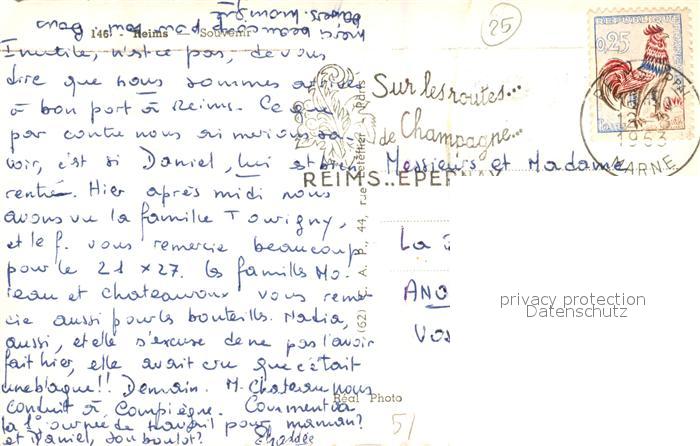 merci beaucoup pour tous
baisers. mangé
146. - Reims Souvenir
25
Inutile, n'est ce pas, de vous
dire que nous sommes arrivés
à bon port à Reims. Ce que
par contre nous aimerions sa-
voir, c'est si Daniel, lui est bien
rentré. Hier après midi nous
avons vu la famille Tourigny,
et le f. vous remercie beaucoup
pour le 21 x 27. Les familles Mo-
reau et Chateauroux vous remer-
cie aussi pour les bouteilles. Nadia,
aussi, et elle s'excuse de ne pas l'avoir
fait hier, elle avait cru que c'était
une blague!! Demain. M. Chateau nous
conduit à Compiègne. Comment va
la 1° journée de travail pour maman?
et Daniel, son boulot?
RÉPUBLIQUE FRANÇAISE
0,25
1963
MARNE
Sur les routes...
de Champagne...
REIMS..EPER
(62) C. A. P., 44, rue Letellier - Paris
Réal Photo
Messieurs et Madame
La
ANO
Vos
51
privacy protection
Datenschutz